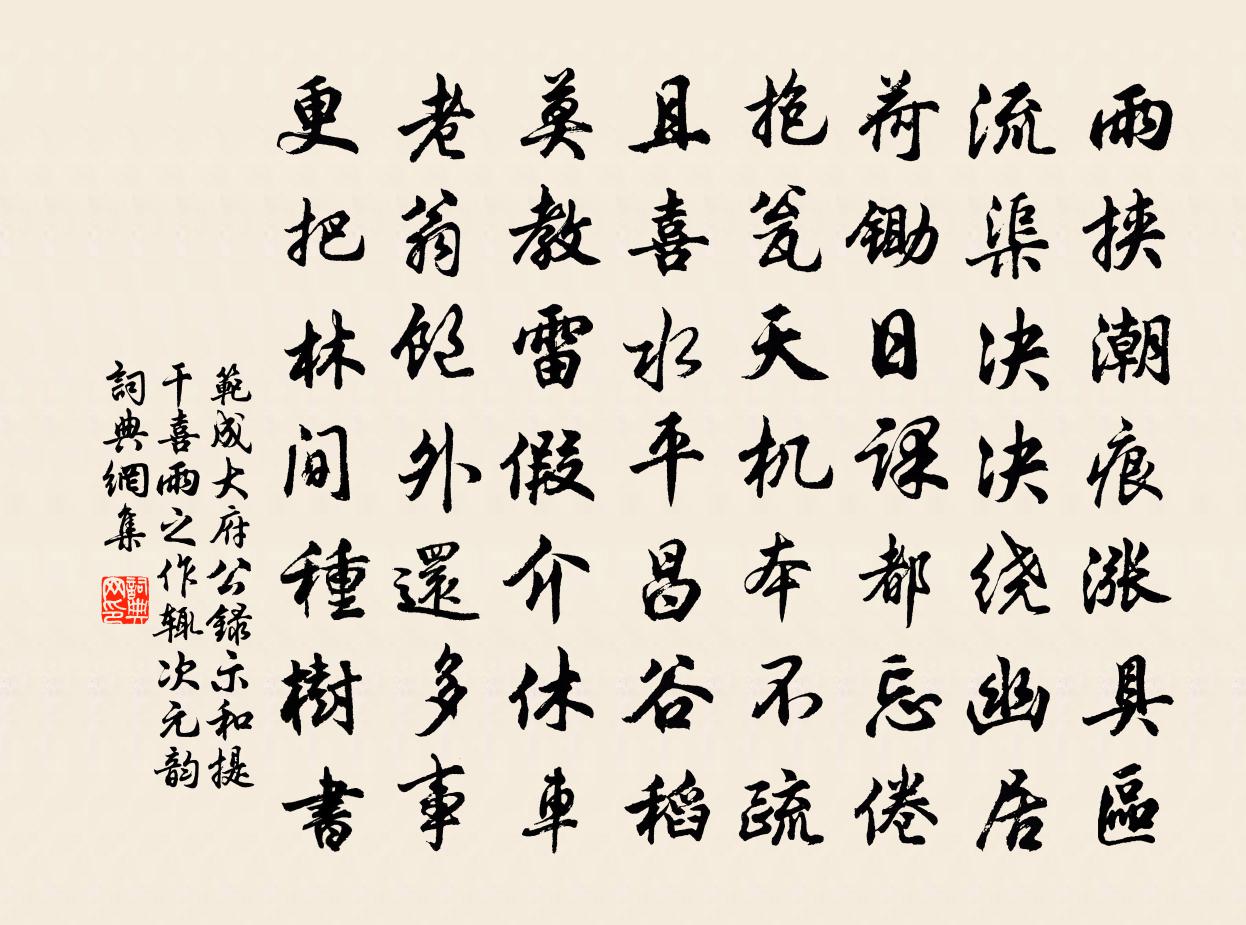 雨挾潮痕漲具區
流渠決決绕幽居
荷鋤日課都忘倦
抱瓮天机本不疏
且喜水平昌谷稻
莫教雷假介休車
老翁飽外還多事
更把林间種樹書
範成大府公錄示和提
干喜雨之作辄次元韵
詞典網集
詞典網印